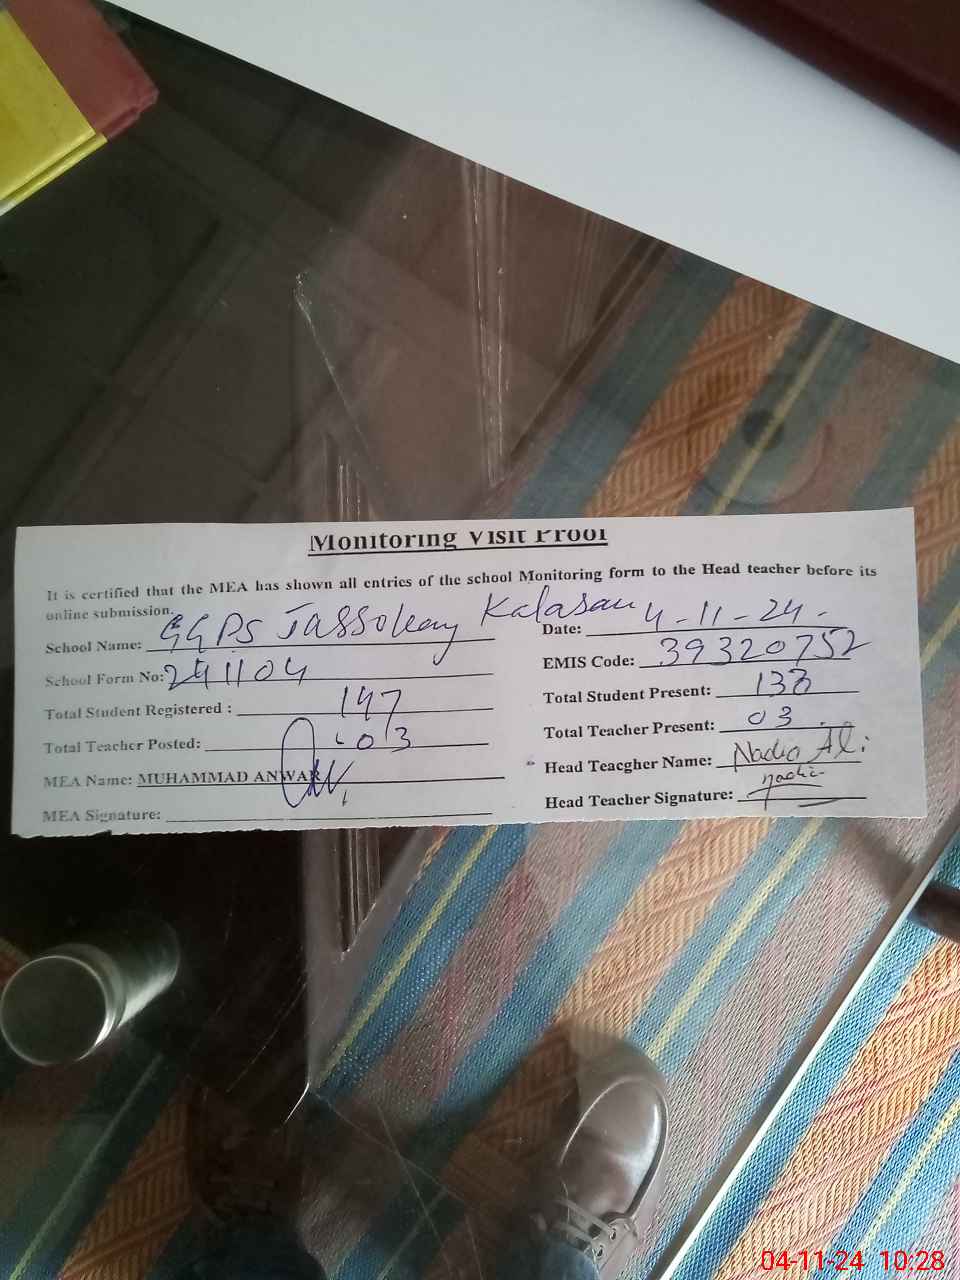 Monitoring Visit Proof
It is certified that the MEA has shown all entries of the school Monitoring form to the Head teacher before its
online submission.
School Name: GGPS Jassokay Kalasan
Date: 4-11-24.
School Form No: 241104
EMIS Code: 39320752
Total Student Registered : 147
Total Student Present:
Total Teacher Posted: 03
Total Teacher Present: 03
MEA Name: MUHAMMAD ANWAR
Head Teacgher Name: Nadia Ali
MEA Signature:
Head Teacher Signature: Nadia
04-11-24 10:28